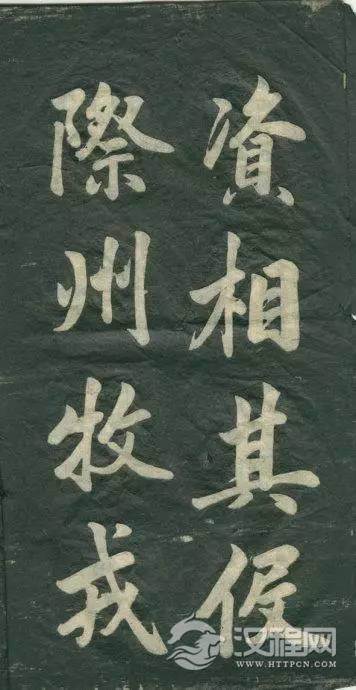 資相其假
際州牧戎
汉程网
WWW.HTTPCN.COM